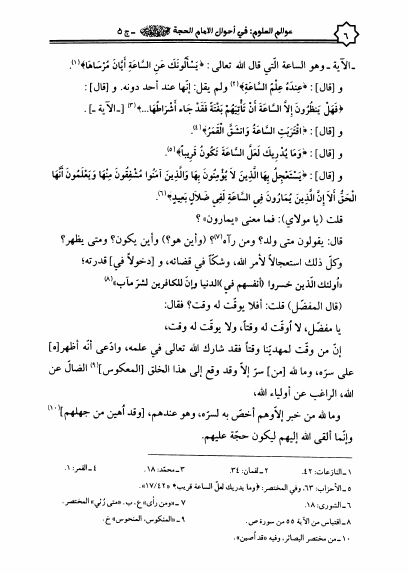 ٦
عوالم العلوم: في أحوال الإمام الحجة ـ ج ٥
ـ الآية ـ وهو الساعة الّتي قال الله تعالى: ﴿يَسْأَلُونَكَ عَنِ السَّاعَةِ أَيَّانَ مُرْسَاهَا﴾(١).
و [قال]: ﴿عِنْدَهُ عِلْمُ السَّاعَةِ﴾(٢) ولم يقل: إنّها عند أحد دونه. و [قال]:
﴿فَهَلْ يَنظُرُونَ إِلاَّ السَّاعَةَ أَنْ تَأْتِيَهُمْ بَغْتَةً فَقَدْ جَاءَ أَشْرَاطُهَا...﴾(٣) [ـ الآية ـ].
و [قال]: ﴿اقْتَرَبَتِ السَّاعَةُ وَانشَقَّ الْقَمَرُ﴾(٤).
و [قال]: ﴿وَمَا يُدْرِيكَ لَعَلَّ السَّاعَةَ تَكُونُ قَرِيباً﴾(٥).
و [قال]: ﴿يَسْتَعْجِلُ بِهَا الَّذِينَ لاَ يُؤْمِنُونَ بِهَا وَالَّذِينَ آمَنُوا مُشْفِقُونَ مِنْهَا وَيَعْلَمُونَ أَنَّهَا
الْحَقُّ أَلاَ إِنَّ الَّذِينَ يُمَارُونَ فِي السَّاعَةِ لَفِي ضَلاَلٍ بَعِيدٍ﴾(٦).
قلت (يا مولاي): فما معنى «يمارون» ؟
قال: يقولون متى ولد؟ ومن رآه(٧)؟ (وأين هو؟) وأين يكون؟ ومتى يظهر؟
وكلّ ذلك استعجالاً لأمر الله، وشكّاً في قضائه، و [دخولاً في] قدرته؛
«أولئك الّذين خسروا (أنفسهم في) الدنيا وإنّ للكافرين لشرّ مآب»(٨)
(قال المفضّل) قلت: أفلا يوقّت له وقت؟ فقال:
يا مفضّل، لا اُوقّت له وقتاً، ولا يوقّت له وقت،
إنّ من وقّت لمهديّنا وقتاً فقد شارك الله تعالى في علمه، وادّعى أنّه أظهر[ه]
على سرّه، وما لله [من] سرّ إلاّ وقد وقع إلى هذا الخلق [المعكوس](٩) الضالّ عن
الله، الراغب عن أولياء الله،
وما لله من خبر إلاّ وهم أخصّ به لسرّه، وهو عندهم، [وقد اُهين من جهلهم](١٠)
وإنّما ألقى الله إليهم ليكون حجّة عليهم.
١ ـ النازعات: ٤٢. ٢ ـ لقمان: ٣٤. ٣ ـ محمّد: ١٨. ٤ ـ القمر: ١.
٥ ـ الأحزاب: ٦٣، وفي المختصر: ﴿وما يدريك لعلّ الساعة قريب﴾ «١٧/٤٢».
٦ ـ الشورى: ١٨. ٧ ـ «ومن رأى» ع. ب. «متى رُئي» المختصر.
٨ ـ اقتباس من الآية ٥٥ من سورة ص. ٩ ـ «المنكوس، المنحوس» خ.
١٠ ـ من مختصر البصائر، وفيه «قد اُصين».